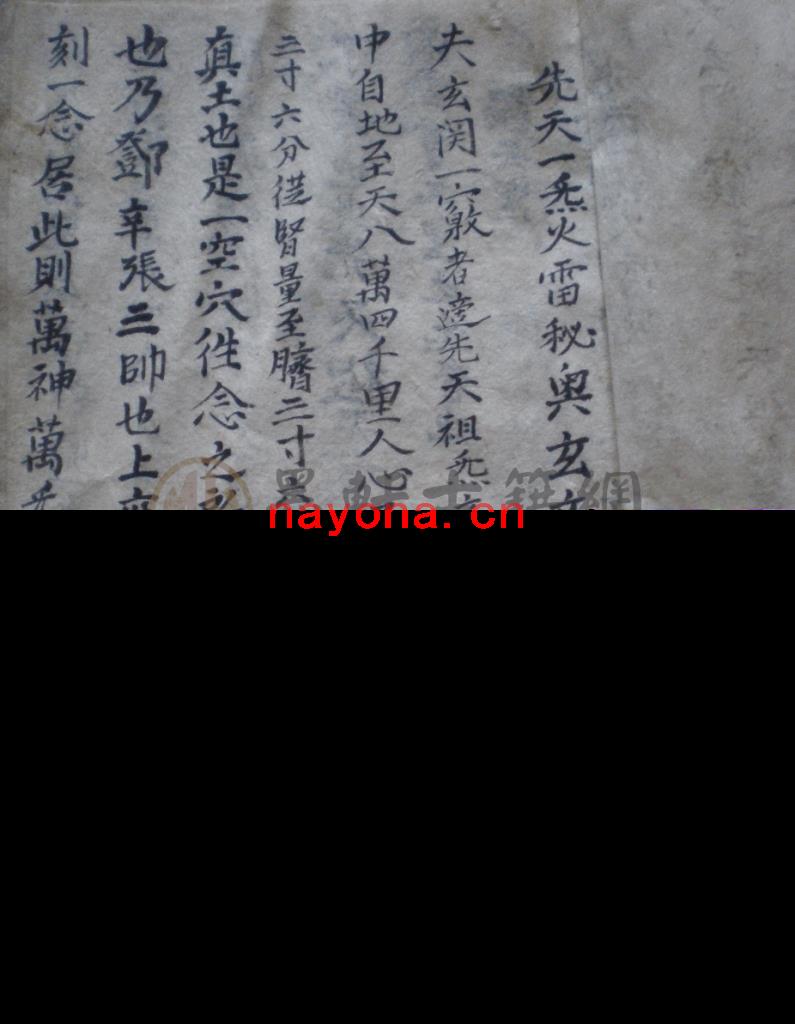 先天一炁火雷秘奥玄
夫玄関一竅者適先天祖炁
中自地至天八萬四千里人心
三寸六分從腎量至臍三寸
真土也是一空穴徃念之
也乃鄧辛張三帥也上
刻一念居此則萬神萬
墨軒古籍網
nayona.cn